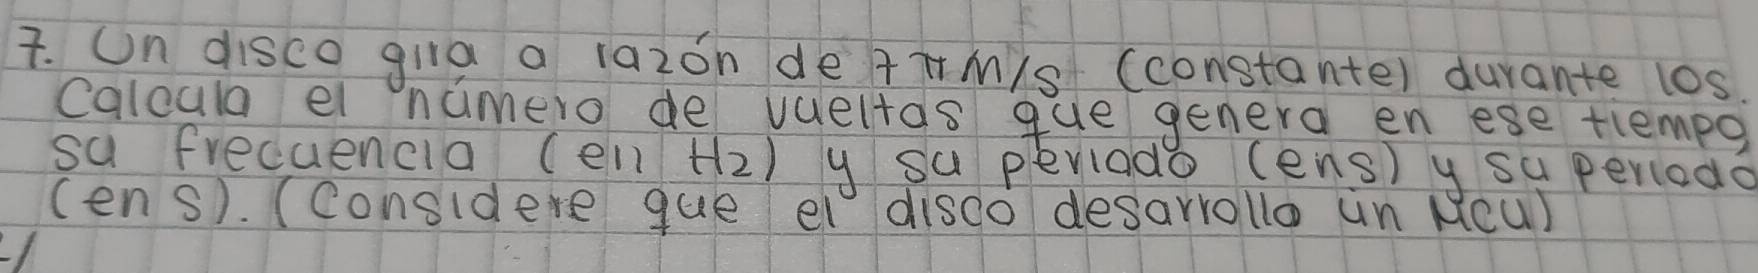 7. Un disco gira a razón de 7 π m/s (constante) durante 10s.
Calcula el número de vueltas que genera en ese tiempo,
su frecuencia (en Hz) y su periodo (en s) y su periodo
(en s). (Considere que el disco desarrolla un MCU)